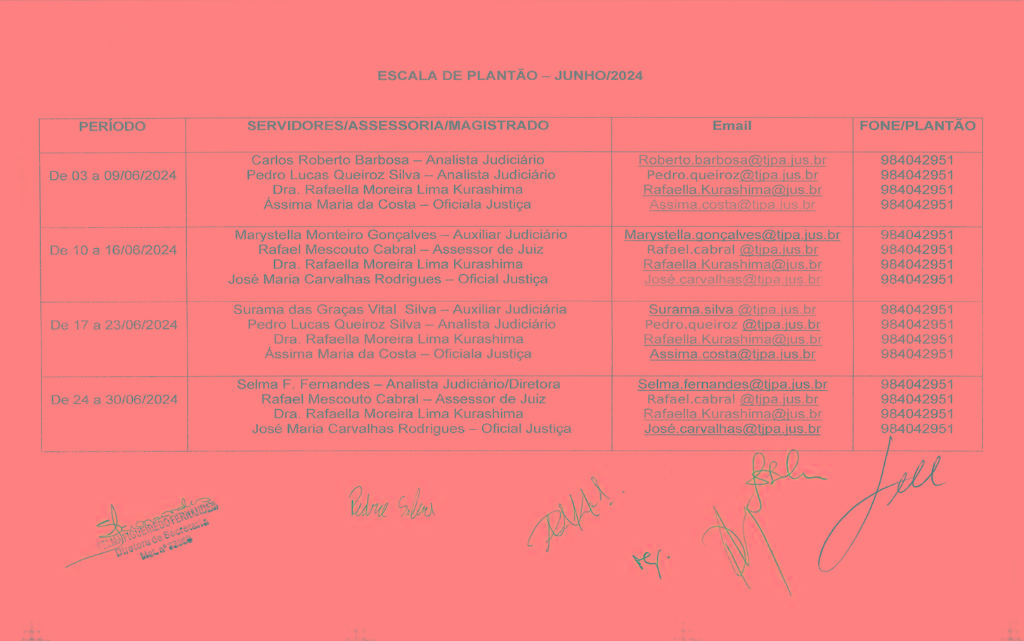 ESCALA DE PLANTÃO – JUNHO/2024
PERÍODO SERVIDORES/ASSESSORIA/MAGISTRADO Email FONE/PLANTÃO
Carlos Roberto Barbosa – Analista Judiciário Roberto.barbosa@tjpa.jus.br 984042951
De 03 a 09/06/2024 Pedro Lucas Queiroz Silva – Analista Judiciário Pedro.queiroz@tjpa.jus.br 984042951
Dra. Rafaella Moreira Lima Kurashima Rafaella.Kurashima@jus.br 984042951
Ássima Maria da Costa – Oficiala Justiça Assima.costa@tjpa.jus.br 984042951
Marystella Monteiro Gonçalves – Auxiliar Judiciário Marystella.gonçalves@tjpa.jus.br 984042951
De 10 a 16/06/2024 Rafael Mescouto Cabral – Assessor de Juiz Rafael.cabral @tjpa.jus.br 984042951
Dra. Rafaella Moreira Lima Kurashima Rafaella.Kurashima@jus.br 984042951
José Maria Carvalhas Rodrigues – Oficial Justiça José.carvalhas@tjpa.jus.br 984042951
Surama das Graças Vital Silva – Auxiliar Judiciária Surama.silva @tjpa.jus.br 984042951
De 17 a 23/06/2024 Pedro Lucas Queiroz Silva – Analista Judiciário Pedro.queiroz @tjpa.jus.br 984042951
Dra. Rafaella Moreira Lima Kurashima Rafaella.Kurashima@jus.br 984042951
Ássima Maria da Costa – Oficiala Justiça Assima.costa@tjpa.jus.br 984042951
Selma F. Fernandes – Analista Judiciário/Diretora Selma.fernandes@tjpa.jus.br 984042951
De 24 a 30/06/2024 Rafael Mescouto Cabral – Assessor de Juiz Rafael.cabral @tjpa.jus.br 984042951
Dra. Rafaella Moreira Lima Kurashima Rafaella.Kurashima@jus.br 984042951
José Maria Carvalhas Rodrigues – Oficial Justiça José.carvalhas@tjpa.jus.br 984042951
Diretora de Secretaria